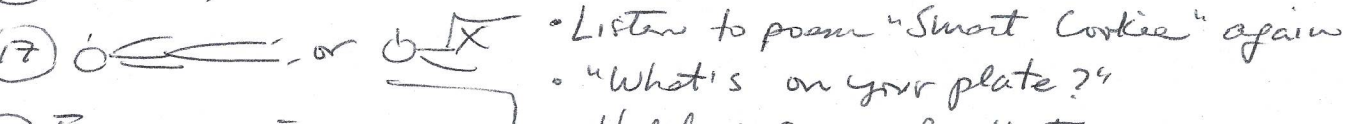 17 or • Listen to poem "Smart Cookie" again
• "What's on your plate?"